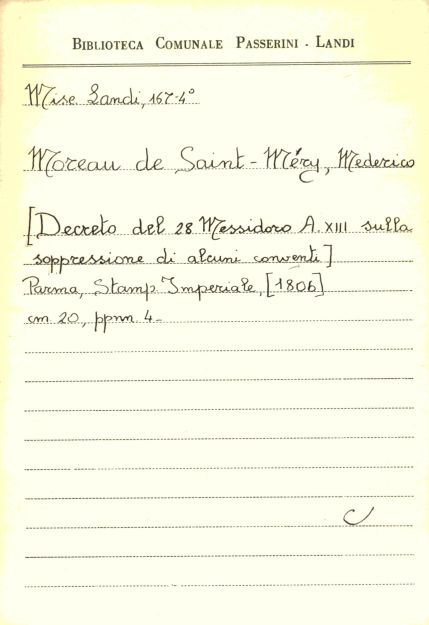 BIBLIOTECA COMUNALE PASSERINI - LANDI
Misc Landi, 167-4°
Moreau de Saint-Méry, Mederico
[Decreto del 28 Messidoro A. XIII sulla
soppressione di alcuni conventi]
Parma, Stamp. Imperiale, [1806]
cm 20, ppnn. 4-
C